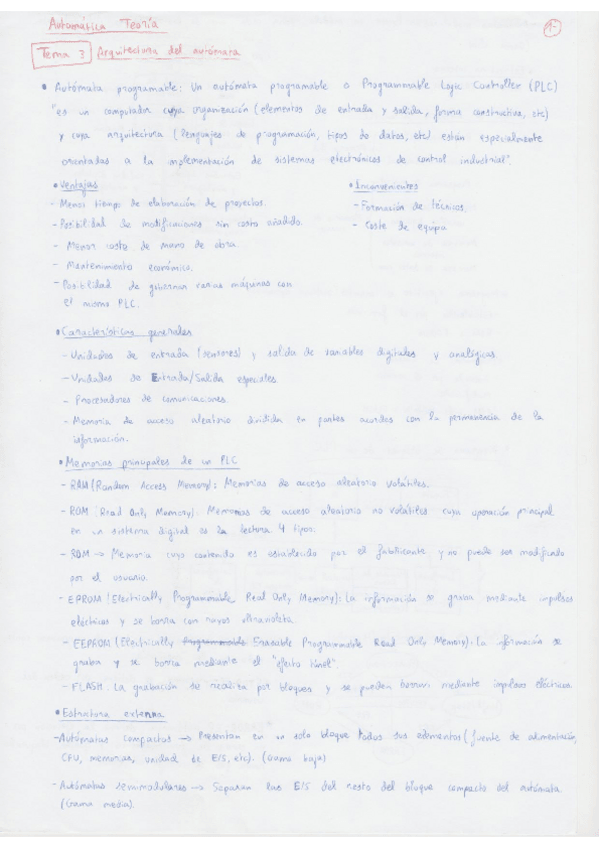 Automática Teoría
1-
Tema 3 Arquitectura del autómata
• Autómata programable: Un autómata programable o Programmable Logic Controller (PLC)
"es un computador cuya organización (elementos de entrada y salida, forma constructiva, etc)
y cuya arquitectura (lenguajes de programación, tipos de datos, etc) están especialmente
orientadas a la implementación de sistemas electrónicos de control industrial".
• Ventajas
- Menor tiempo de elaboración de proyectos.
- Posibilidad de modificaciones sin costo añadido.
- Menor coste de mano de obra.
- Mantenimiento económico.
- Posibilidad de gobernar varias máquinas con
el mismo PLC.
• Inconvenientes
- Formación de técnicos.
- Coste de equipo
• Características generales
- Unidades de entrada (sensores) y salida de variables digitales y analógicas.
- Unidades de Entrada/Salida especiales.
- Procesadores de comunicaciones.
- Memoria de acceso aleatorio dividida en partes acordes con la permanencia de la
información.
• Memorias principales de un PLC
- RAM (Random Access Memory): Memorias de acceso aleatorio volátiles.
- ROM (Read Only Memory). Memorias de acceso aleatorio no volátiles cuya operación principal
en un sistema digital es la lectura. 4 tipos.
- ROM → Memoria cuyo contenido es establecido por el fabricante y no puede ser modificado
por el usuario.
- EPROM (Electrically Programmable Read Only Memory): La información se graba mediante impulsos
eléctricos y se borra con rayos ultravioleta.
- EEPROM (Electrically Programmable Erasable Programmable Read Only Memory): La información se
graba y se borra mediante el "efecto túnel".
- FLASH. La grabación se realiza por bloques y se pueden borrar mediante impulsos eléctricos.
• Estructura externa
- Autómatas compactos → Presentan en un solo bloque todos sus elementos (fuente de alimentación,
CPU, memorias, unidad de E/S, etc). (Gama baja)
- Autómatas semimodulares → Separan las E/S del resto del bloque compacto del autómata
(Gama media).